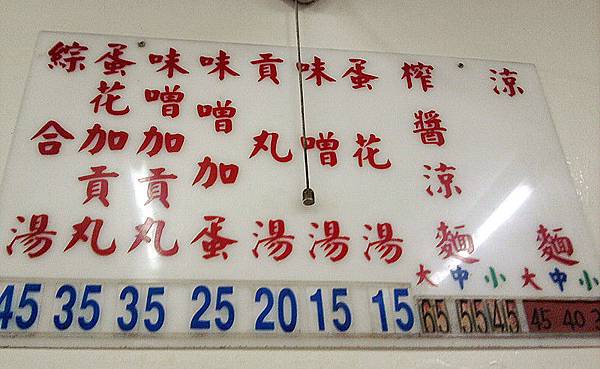 涼麵
大 中 小
45 40 3
榨醬涼麵
大 中 小
65 55 45
蛋花湯
15
味噌湯
15
貢丸湯
20
味噌加蛋
25
味噌加貢丸
35
蛋花加貢丸
35
綜合湯
45